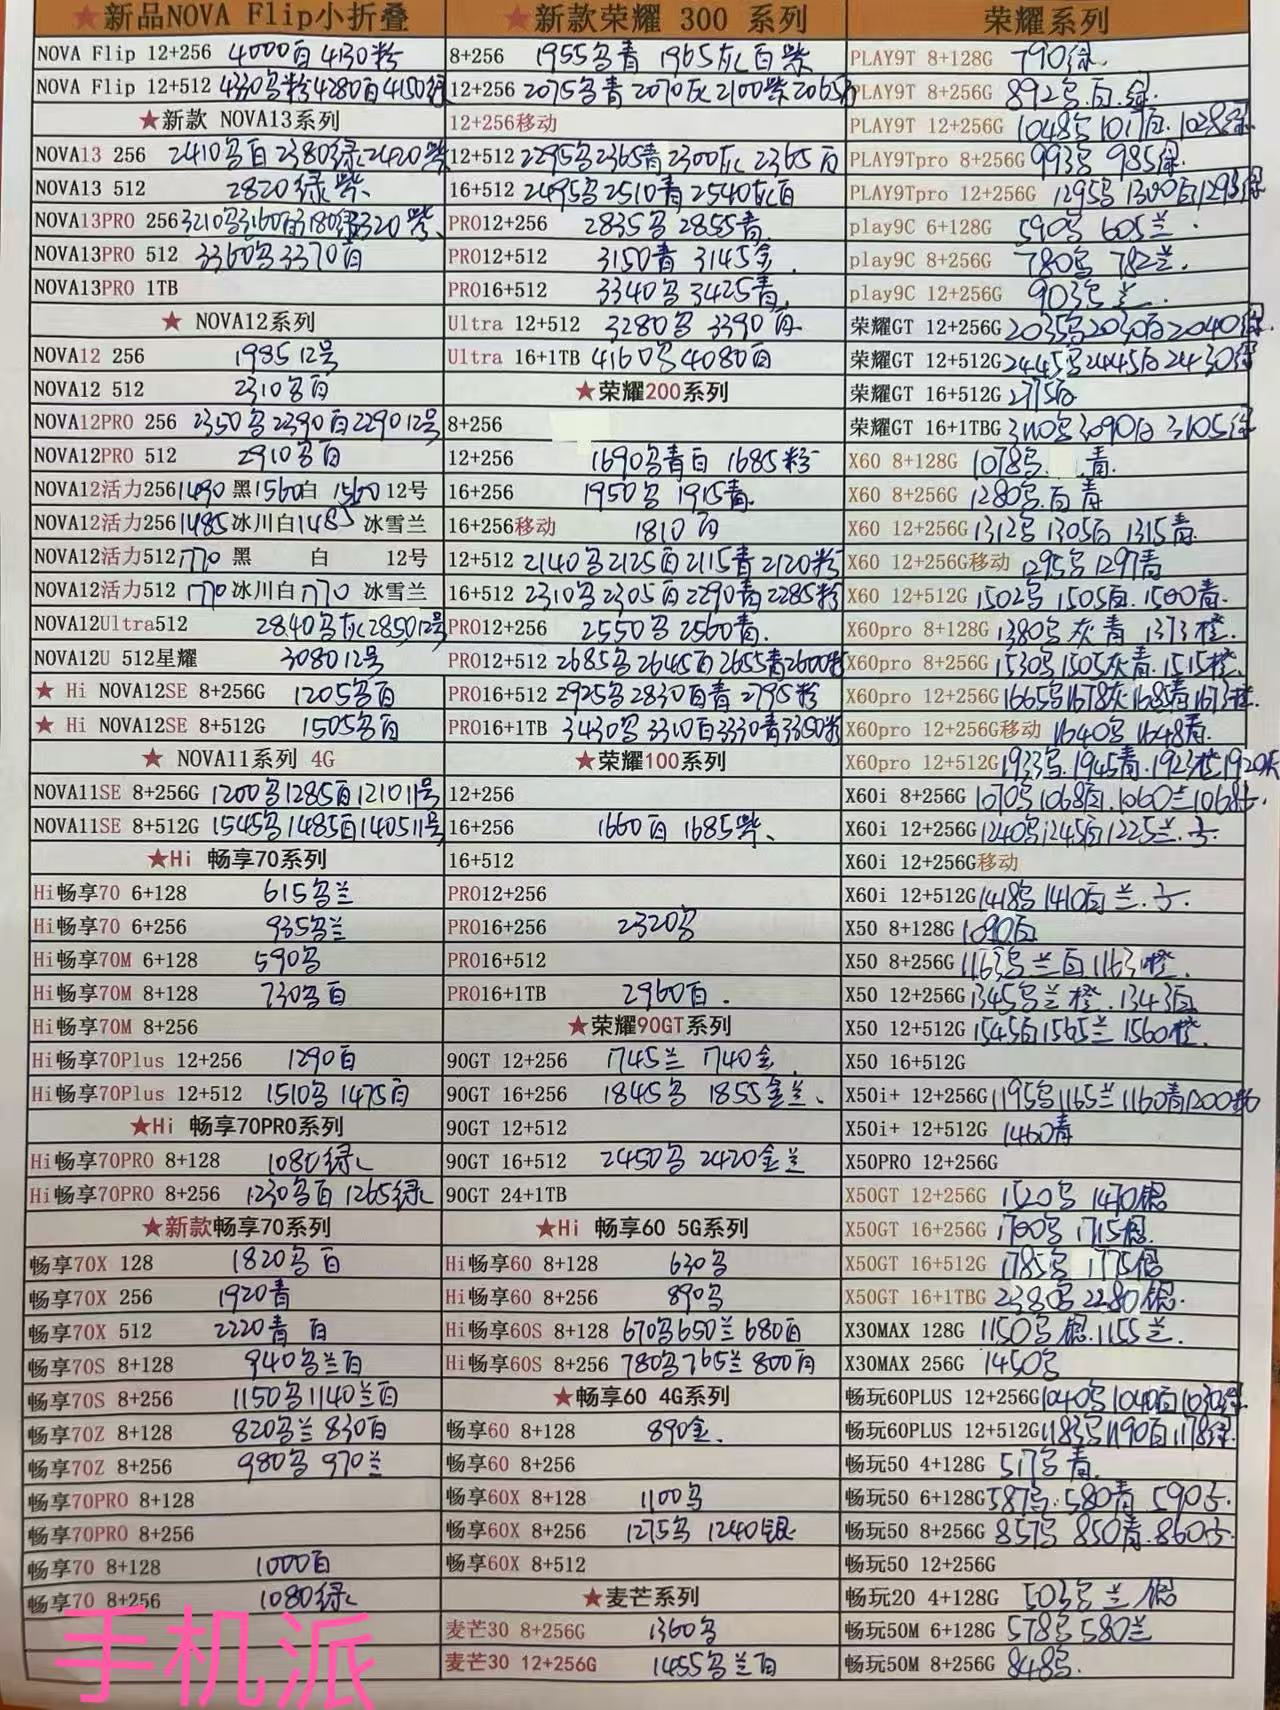 ★新品NOVA Flip小折叠
NOVA Flip 12+256 4000白 4130粉
NOVA Flip 12+512 4330乌粉4280白4150绿
★新款 NOVA13系列
NOVA13 256 2410乌白 2380绿2420紫
NOVA13 512 2820绿紫、
NOVA13PRO 256 3210乌3160白3180绿3320紫、
NOVA13PRO 512 3360乌 3370白
NOVA13PRO 1TB
★ NOVA12系列
NOVA12 256 1985 12号
NOVA12 512 2310乌白
NOVA12PRO 256 2350乌 2390白 2290 12号
NOVA12PRO 512 2910乌白
NOVA12活力256 1490 黑 1560白 1560 12号
NOVA12活力256 1485 冰川白 1485 冰雪兰
NOVA12活力512 1770 黑 白 12号
NOVA12活力512 1770 冰川白 1770 冰雪兰
NOVA12Ultra512 2840乌灰2850 12号
NOVA12U 512星耀 3080 12号
★ Hi NOVA12SE 8+256G 1205乌白
★ Hi NOVA12SE 8+512G 1505乌白
★ NOVA11系列 4G
NOVA11SE 8+256G 1200乌1285白1210 11号
NOVA11SE 8+512G 1545乌1485白1405 11号
★Hi 畅享70系列
Hi畅享70 6+128 615乌兰
Hi畅享70 6+256 935乌兰
Hi畅享70M 6+128 590乌
Hi畅享70M 8+128 730乌白
Hi畅享70M 8+256
Hi畅享70Plus 12+256 1290白
Hi畅享70Plus 12+512 1510乌 1475白
★Hi 畅享70PRO系列
Hi畅享70PRO 8+128 1080绿
Hi畅享70PRO 8+256 1230乌白 1265绿
★新款畅享70系列
畅享70X 128 1820乌 白
畅享70X 256 1920青
畅享70X 512 2220青 白
畅享70S 8+128 940乌兰白
畅享70S 8+256 1150乌1140兰白
畅享70Z 8+128 820乌兰 830白
畅享70Z 8+256 980乌 970兰
畅享70PRO 8+128
畅享70PRO 8+256
畅享70 8+128 1000白
畅享70 8+256 1080绿
手机派
★新款荣耀 300 系列
8+256 1955乌青 1965灰白紫
12+256 2075乌青 2070灰 2100紫2065白
12+256移动
12+512 2295乌2365青2300灰 2365白
16+512 2495乌2510青2540灰白
PRO12+256 2835乌 2855青.
PRO12+512 3150青 3145金.
PRO16+512 3340乌 3425青.
Ultra 12+512 3280乌 3390白
Ultra 16+1TB 4160乌 4080白
★荣耀200系列
8+256
12+256 1690乌青白 1685粉
16+256 1950乌 1915青.
16+256移动 1810白
12+512 2140乌2125白2115青2120粉
16+512 2310乌2305白2290青2285粉
PRO12+256 2550乌 2560青.
PRO12+512 2685乌2645白2655青2600粉
PRO16+512 2925乌2830白青 2795粉
PRO16+1TB 3430乌3310白3330青3350粉
★荣耀100系列
12+256
16+256 1660白 1685紫、
16+512
PRO12+256
PRO16+256 2320乌
PRO16+512
PRO16+1TB 2960白.
★荣耀90GT系列
90GT 12+256 1745兰 1740金.
90GT 16+256 1845乌 1855金兰、
90GT 12+512
90GT 16+512 2450乌 2420金兰
90GT 24+1TB
★Hi 畅享60 5G系列
Hi畅享60 8+128 630乌
Hi畅享60 8+256 890乌
Hi畅享60S 8+128 670乌650兰 680白
Hi畅享60S 8+256 780乌765兰 800白
★畅享60 4G系列
畅享60 8+128 890金.
畅享60 8+256
畅享60X 8+128 1100乌
畅享60X 8+256 1275乌 1240银
畅享60X 8+512
★麦芒系列
麦芒30 8+256G 1360乌
麦芒30 12+256G 1455乌兰白
荣耀系列
PLAY9T 8+128G 790绿.
PLAY9T 8+256G 892乌.白.绿.
PLAY9T 12+256G 1048乌 1017白.1028绿
PLAY9Tpro 8+256G 993乌 985绿.
PLAY9Tpro 12+256G 1295乌 1300白1293绿
play9C 6+128G 590乌 605兰.
play9C 8+256G 780乌 782兰.
play9C 12+256G 903乌 兰.
荣耀GT 12+256G 2035乌2030白2040绿.
荣耀GT 12+512G 2445乌2445白2430绿
荣耀GT 16+512G 2715白
荣耀GT 16+1TBG 3110乌3090白3105绿
X60 8+128G 1078乌. 青.
X60 8+256G 1280乌.白 青
X60 12+256G 1312乌 1305白 1315青
X60 12+256G移动 1295乌 1297青
X60 12+512G 1502乌 1505白.1500青.
X60pro 8+128G 1380乌 灰 青 1373橙.
X60pro 8+256G 1530乌1505灰青.1515橙.
X60pro 12+256G 1665乌1678灰1685青1673橙.
X60pro 12+256G移动 1640乌 1648青.
X60pro 12+512G 1933乌.1945青.1923橙1920灰
X60i 8+256G 1070乌1068白.1060兰1068士.
X60i 12+256G 1240乌1245白1225兰.
X60i 12+256G移动
X60i 12+512G 1418乌 1410白 兰.
X50 8+128G 1090白
X50 8+256G 1163乌 兰 白 1163橙.
X50 12+256G 1345乌兰 橙.1343白
X50 12+512G 1545白1565兰 1560橙.
X50 16+512G
X50i+ 12+256G 1195乌1165兰1160青1200粉
X50i+ 12+512G 1460青
X50PRO 12+256G
X50GT 12+256G 1520乌 1470银
X50GT 16+256G 1700乌 1715银.
X50GT 16+512G 1785乌 1775银
X50GT 16+1TBG 2380乌 2280银.
X30MAX 128G 1150乌 银.1155兰.
X30MAX 256G 1450乌
畅玩60PLUS 12+256G 1040乌1040白1030绿.
畅玩60PLUS 12+512G 1183乌1190白1178绿.
畅玩50 4+128G 517乌 青.
畅玩50 6+128G 587乌.580青 590
畅玩50 8+256G 857乌 850青.860
畅玩50 12+256G
畅玩20 4+128G 503乌 兰 银
畅玩50M 6+128G 578乌 580兰
畅玩50M 8+256G 848乌.